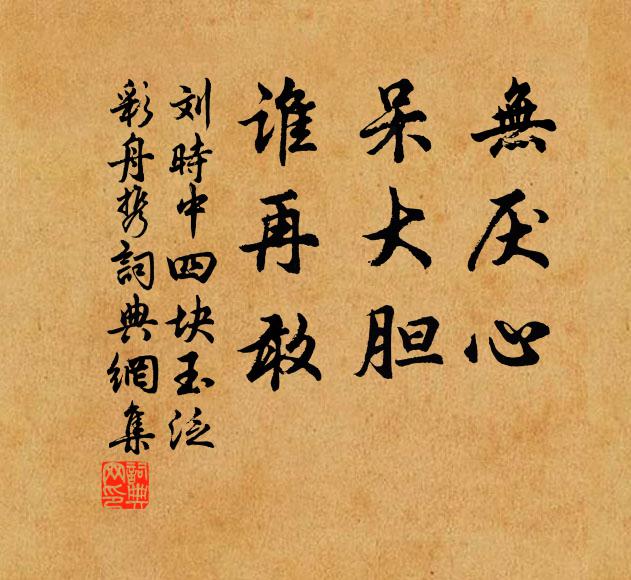 無厌心
呆大胆
谁再敢
刘時中四块玉泛
彩舟携詞典網集
詞典
网印